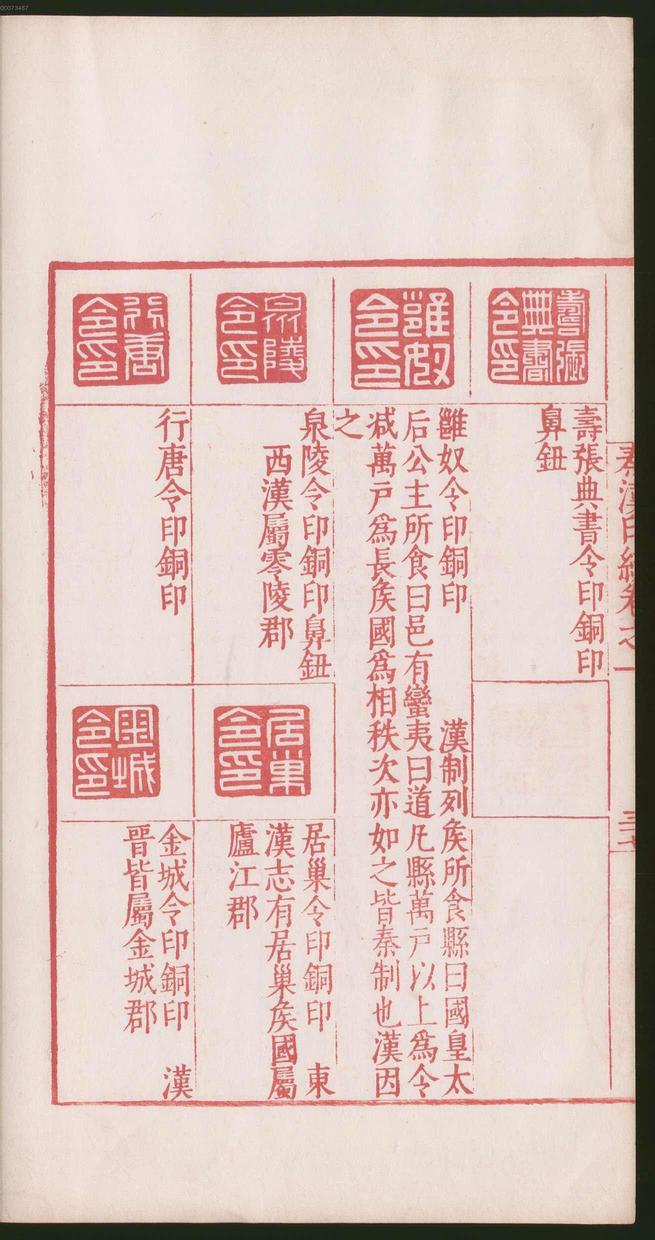 00073467
秦漢印統卷之一
壽張典書令印
壽張典書令印銅印
鼻鈕
雒奴令印
雒奴令印銅印　漢制列矦所食縣曰國皇太
后公主所食曰邑有蠻夷曰道凡縣萬戶以上爲令
減萬戶爲長矦國爲相秩次亦如之皆秦制也漢因
之
泉陵令印
泉陵令印銅印鼻鈕
西漢屬零陵郡
居巢令印
居巢令印銅印　東
漢志有居巢矦國屬
廬江郡
行唐令印
行唐令印銅印
金城令印
金城令印銅印　漢
晉皆屬金城郡